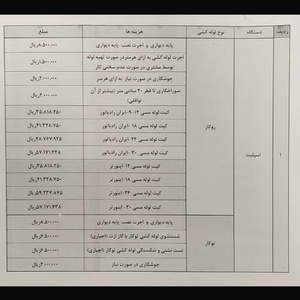 ردیف دستگاه نوع لوله کشی هزینه ها مبلغ
اسپلیت
روکار
پایه دیواری و اجرت نصب پایه دیواری ۸.۵۰۰.۰۰۰ریال
اجرت لوله کشی به ازای هرمتردر صورت تهیه لوله توسط مشتری در صورت عدم سختی کار ۱.۵۰۰.۰۰۰ریال
جوشکاری در صورت نیاز به ازای هرسر ۲.۰۰۰.۰۰۰ریال
سوراخکاری تا قطر ۲۰ سانتی متر (بیشتر از آن توافقی) ۲.۰۰۰.۰۰۰ریال
کیت لوله مسی ۱۲-۹ ایران رادیاتور ۳۵.۸۱۸.۲۵۰ریال
کیت لوله مسی ۱۸ -ایران رادیاتور ۴۱.۳۳۸.۷۵۰ریال
کیت لوله مسی ۲۴-ایران رادیاتور ۴۸.۷۶۷.۹۲۵ریال
کیت لوله مسی ۳۰-ایران رادیاتور ۵۷.۱۷۱.۴۳۸ریال
کیت لوله مسی ۱۲-اینورتر ۳۵.۸۱۸.۲۵۰ریال
کیت لوله مسی ۱۸-اینورتر ۴۱.۳۳۸.۷۵۰ریال
کیت لوله مسی ۲۴-اینورتر ۵۹.۲۳۷.۸۷۵ریال
کیت لوله مسی ۳۰-اینورتر ۵۷.۱۷۱.۴۳۸ریال
توکار
پایه دیواری و اجرت نصب پایه دیواری ۸.۵۰۰.۰۰۰ریال
شستشوی لوله کشی توکار با گاز ازت (اجباری) ۶.۵۰۰.۰۰۰ریال
تست نشتی و شکستگی لوله کشی توکار(اجباری) ۶.۵۰۰.۰۰۰ریال
جوشکاری در صورت نیاز ۲.۰۰۰.۰۰۰ریال